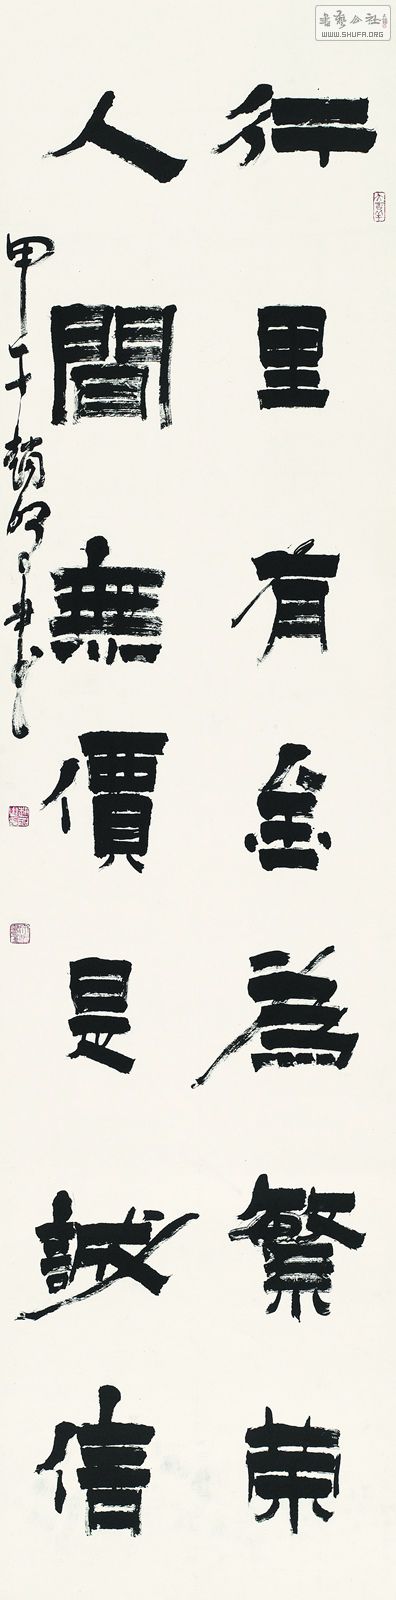 行里有金為繁荣
人間無價是誠信
甲午
書藝公社
WWW.SHUFA.ORG